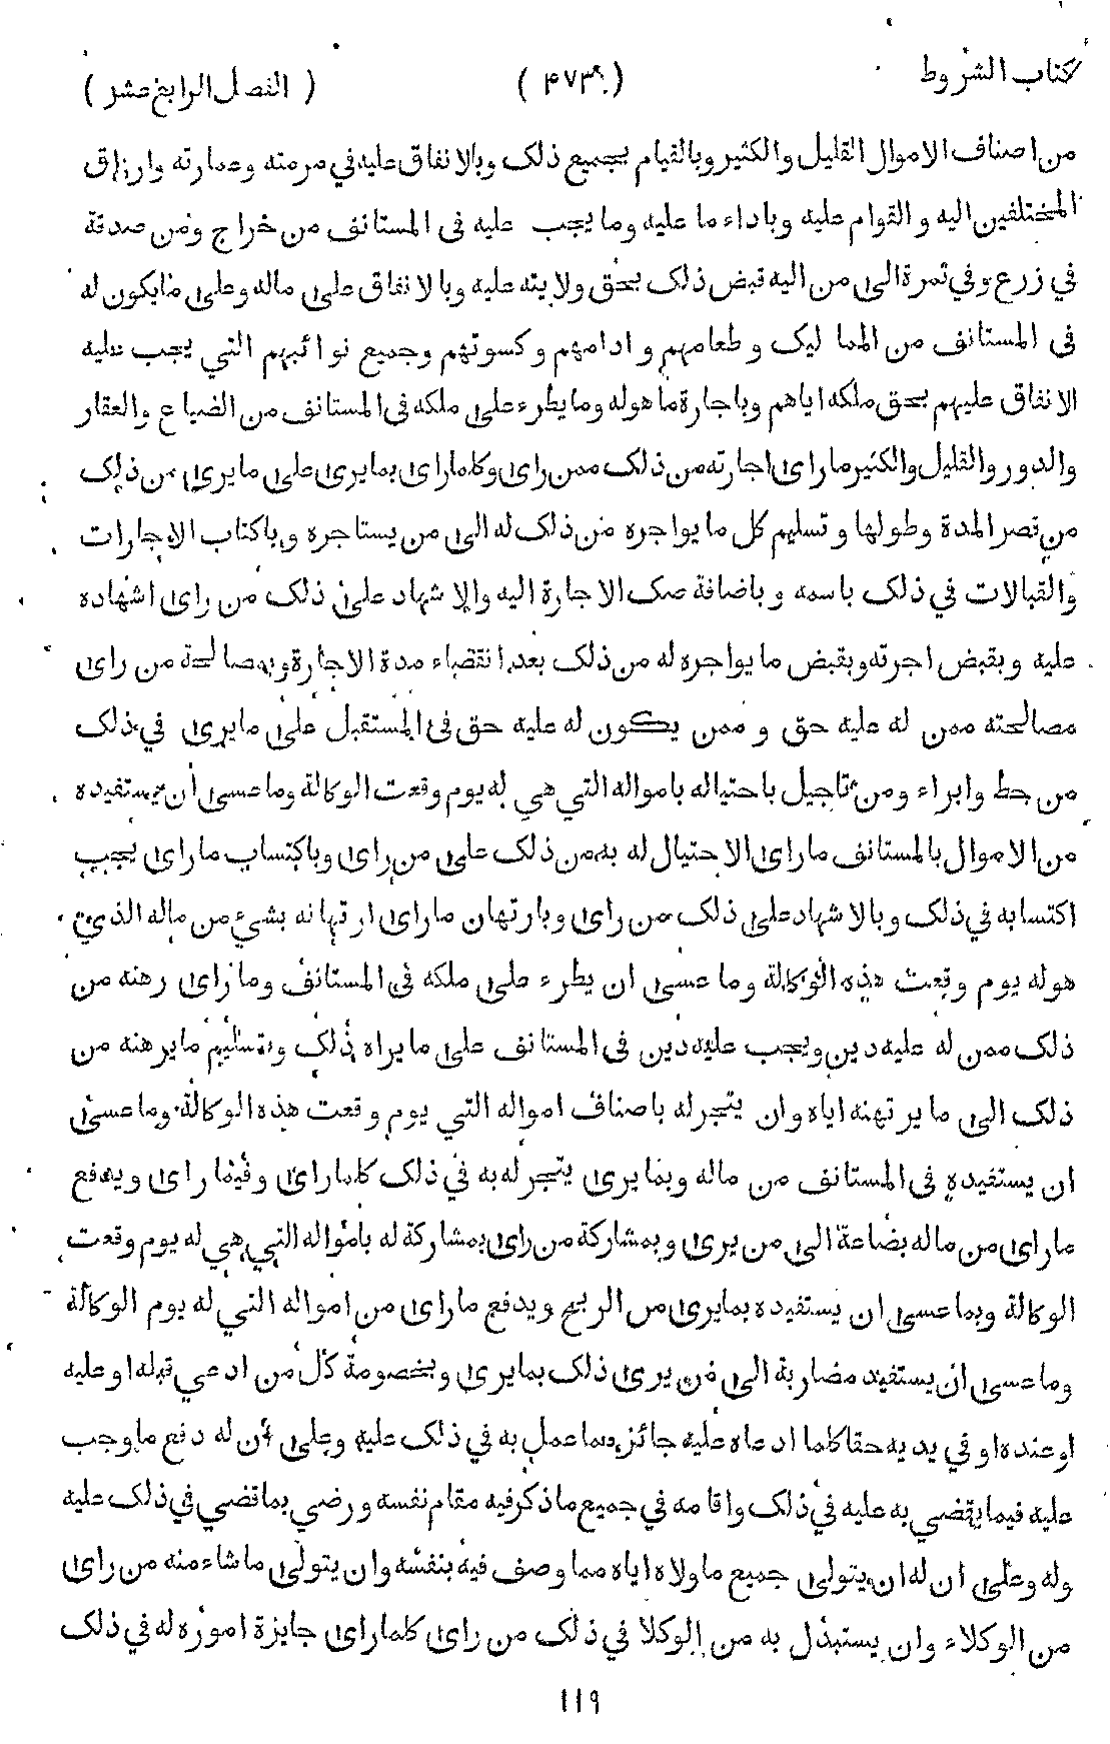 كتاب الشروط ( ۴۷۳ ) ( الفصل الرابع عشر )
من اصناف الاموال القليل والكثير وبالقيام بجميع ذلك وبالانفاق عليه في مرمته وعمارته وارزاق
المختلفين اليه و القوام عليه وباداء ما عليه وما يجب عليه فى المستانف من خراج ومن صدقة
في زرع وفي ثمرة الى من اليه قبض ذلك بحق ولايته عليه وبالانفاق على ماله وعلى مايكون له
فى المستانف من المما ليك و طعامهم و ادامهم و كسوتهم وجميع نوائبهم التي يجب عليه
الانفاق عليهم بحق ملكه اياهم وباجارة ما هوله وما يطرء على ملكه فى المستانف من الضياع والعقار
والدور والقليل والكثير ماراى اجارته من ذلك ممن راى وكلما راى بما يرى على ما يرى من ذلك
من قصر المدة وطولها و تسليم كل ما يواجره من ذلك له الى من يستاجره وباكتاب الاجارات
والقبالات في ذلك باسمه و باضافة صك الاجارة اليه والاشهاد على ذلك من راى اشهاده
عليه و بقبض اجرته وبقبض ما يواجره له من ذلك بعد انقضاء مدة الاجارة وبمصالحة من راى
مصالحته ممن له عليه حق و ممن يكون له عليه حق فى المستقبل على ما يرى في ذلك
من حط وابراء ومن تاجيل باحتياله بامواله التي هي له يوم وقعت الوكالة وما عسى أن يستفيده
من الاموال بالمستانف ماراى الاحتيال له به من ذلك على من راى وباكتساب ماراى يجب
اكتسابه في ذلك وبالاشهاد على ذلك من راى وبارتهان ماراى ارتهانه بشيء من ماله الذي
هوله يوم وقعت هذه الوكالة وما عسى ان يطرء على ملكه في المستانف وما راى رهنه من
ذلك ممن له عليه دين ويجب عليه دين فى المستانف على ما يراه ذلك وتسليم ما يرهنه من
ذلك الى ما يرتهنه اياه وان يتجر له باصناف امواله التي يوم وقعت هذه الوكالة وما عسى
ان يستفيده فى المستانف من ماله وبما يرى يتجر له به في ذلك كلما راى وفيما راى ويدفع
ماراى من ماله بضاعة الى من يرى وبمشاركة من راى بمشاركة له بامواله التي هي له يوم وقعت
الوكالة وبما عسى ان يستفيده بمايرى من الربح ويدفع ماراى من امواله التي له يوم الوكالة
وما عسى ان يستفيد مضاربة الى من يرى ذلك بمايرى وبخصومة كل من ادعي قبله او عليه
اوعنده اوفي يديه حقا كلما ادعاه عليه جائز مما عمل به في ذلك عليه وعلى أن له دفع ما وجب
عليه فيما يقضي به عليه في ذلك واقامه في جميع ماذكر فيه مقام نفسه ورضي بماقضي في ذلك عليه
وله وعلى ان له ان يتولى جميع ما ولاه اياه مما وصف فيه بنفسه وان يتولى ماشاء منه من راى
من الوكلاء وان يستبدل به من الوكلا في ذلك من راى كلما راى جايزة اموره له في ذلك
۱۱۹